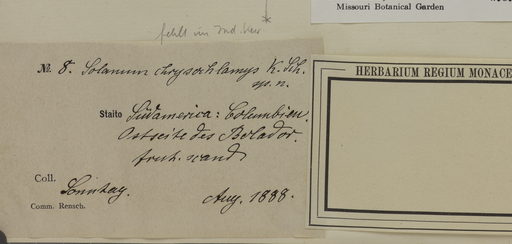 Missouri Botanical Garden
fehlt im Ind. Kew
HERBARIUM REGIUM MONACE
№. 8. Solanum chrysochlamys K. Sch.
sp. n.
Staito Südamerica: Columbien.
Ostseite des Bolador.
frut. scand
Coll. Sonntag.
Aug. 1888.
Comm. Rensch.